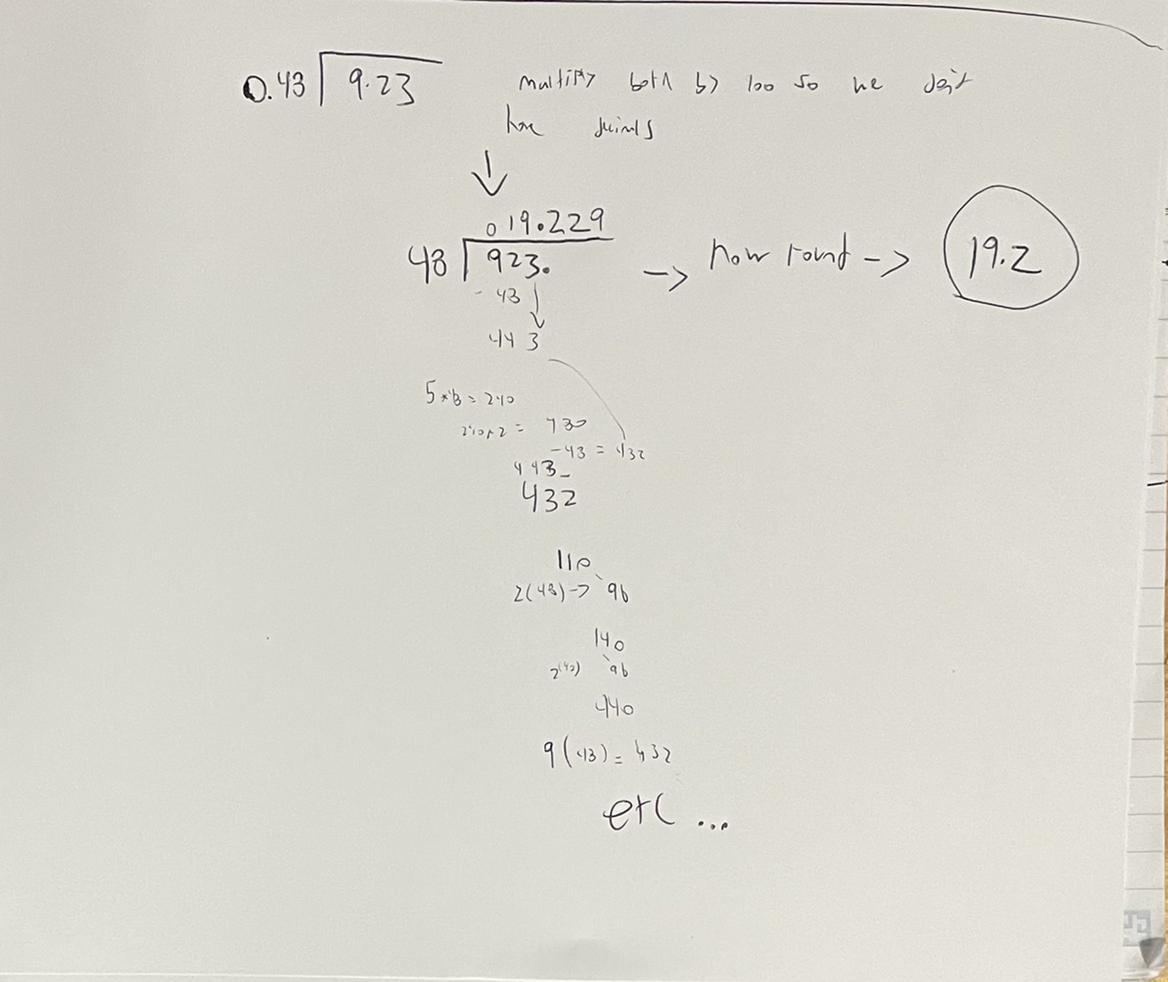 0.48 9.23 multiply both by 100 so we don't
have decimals
↓
019.229
48 923. -> now round -> 19.2
- 48
443
5*48 = 240
240*2 = 480
-48 = 432
443-
432
110
2(48) -> 96
140
2(48) 96
440
9(48) = 432
etc ...